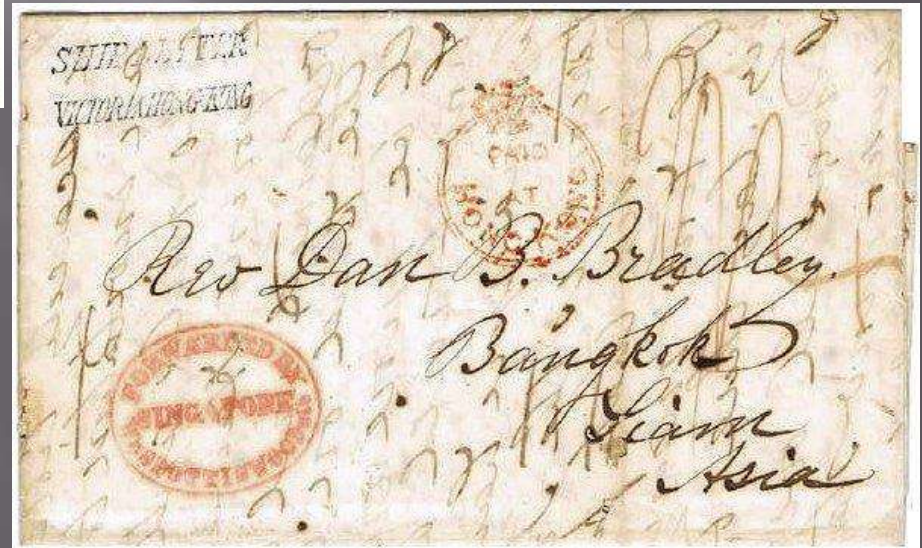 SHIP LETTER
VICTORIA HONG-KONG
PAID
AT
HONG KONG
Rev Dan B. Bradley.
Bangkok
Siam
Asia
FORWARDED BY
SINGAPORE